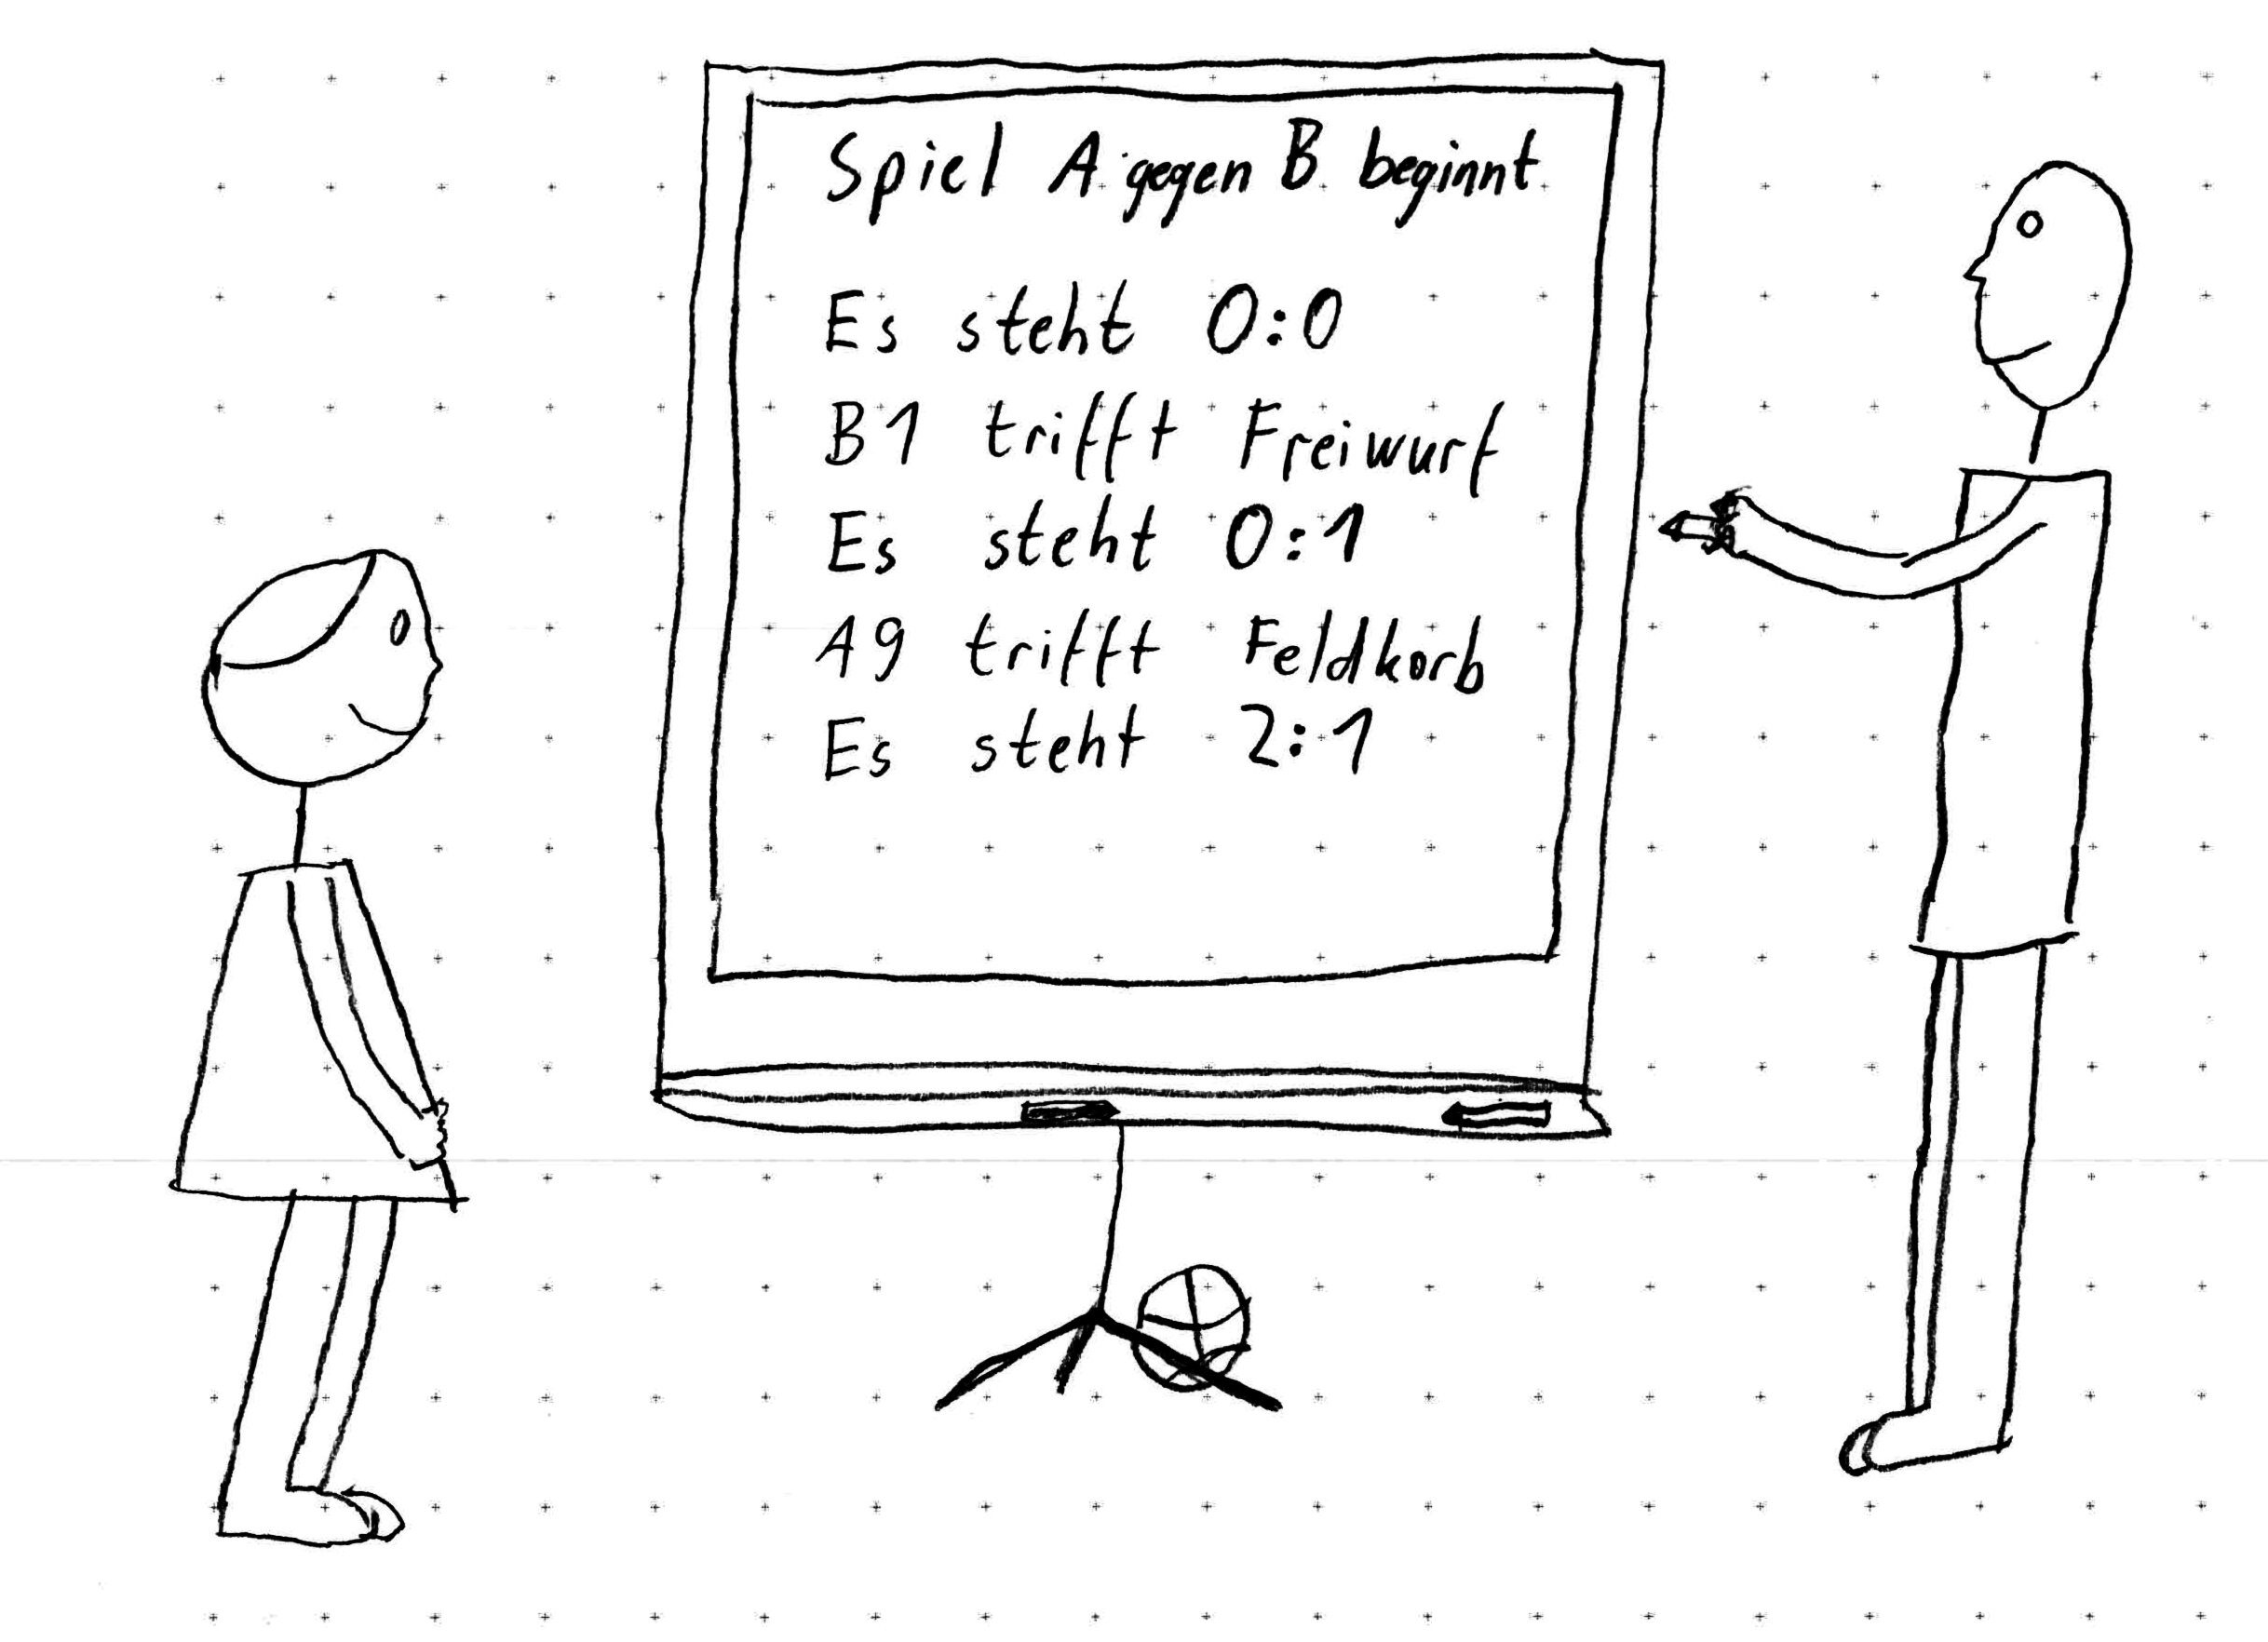 Spiel A gegen B beginnt
Es steht 0:0
B1 trifft Freiwurf
Es steht 0:1
A9 trifft Feldkorb
Es steht 2:1